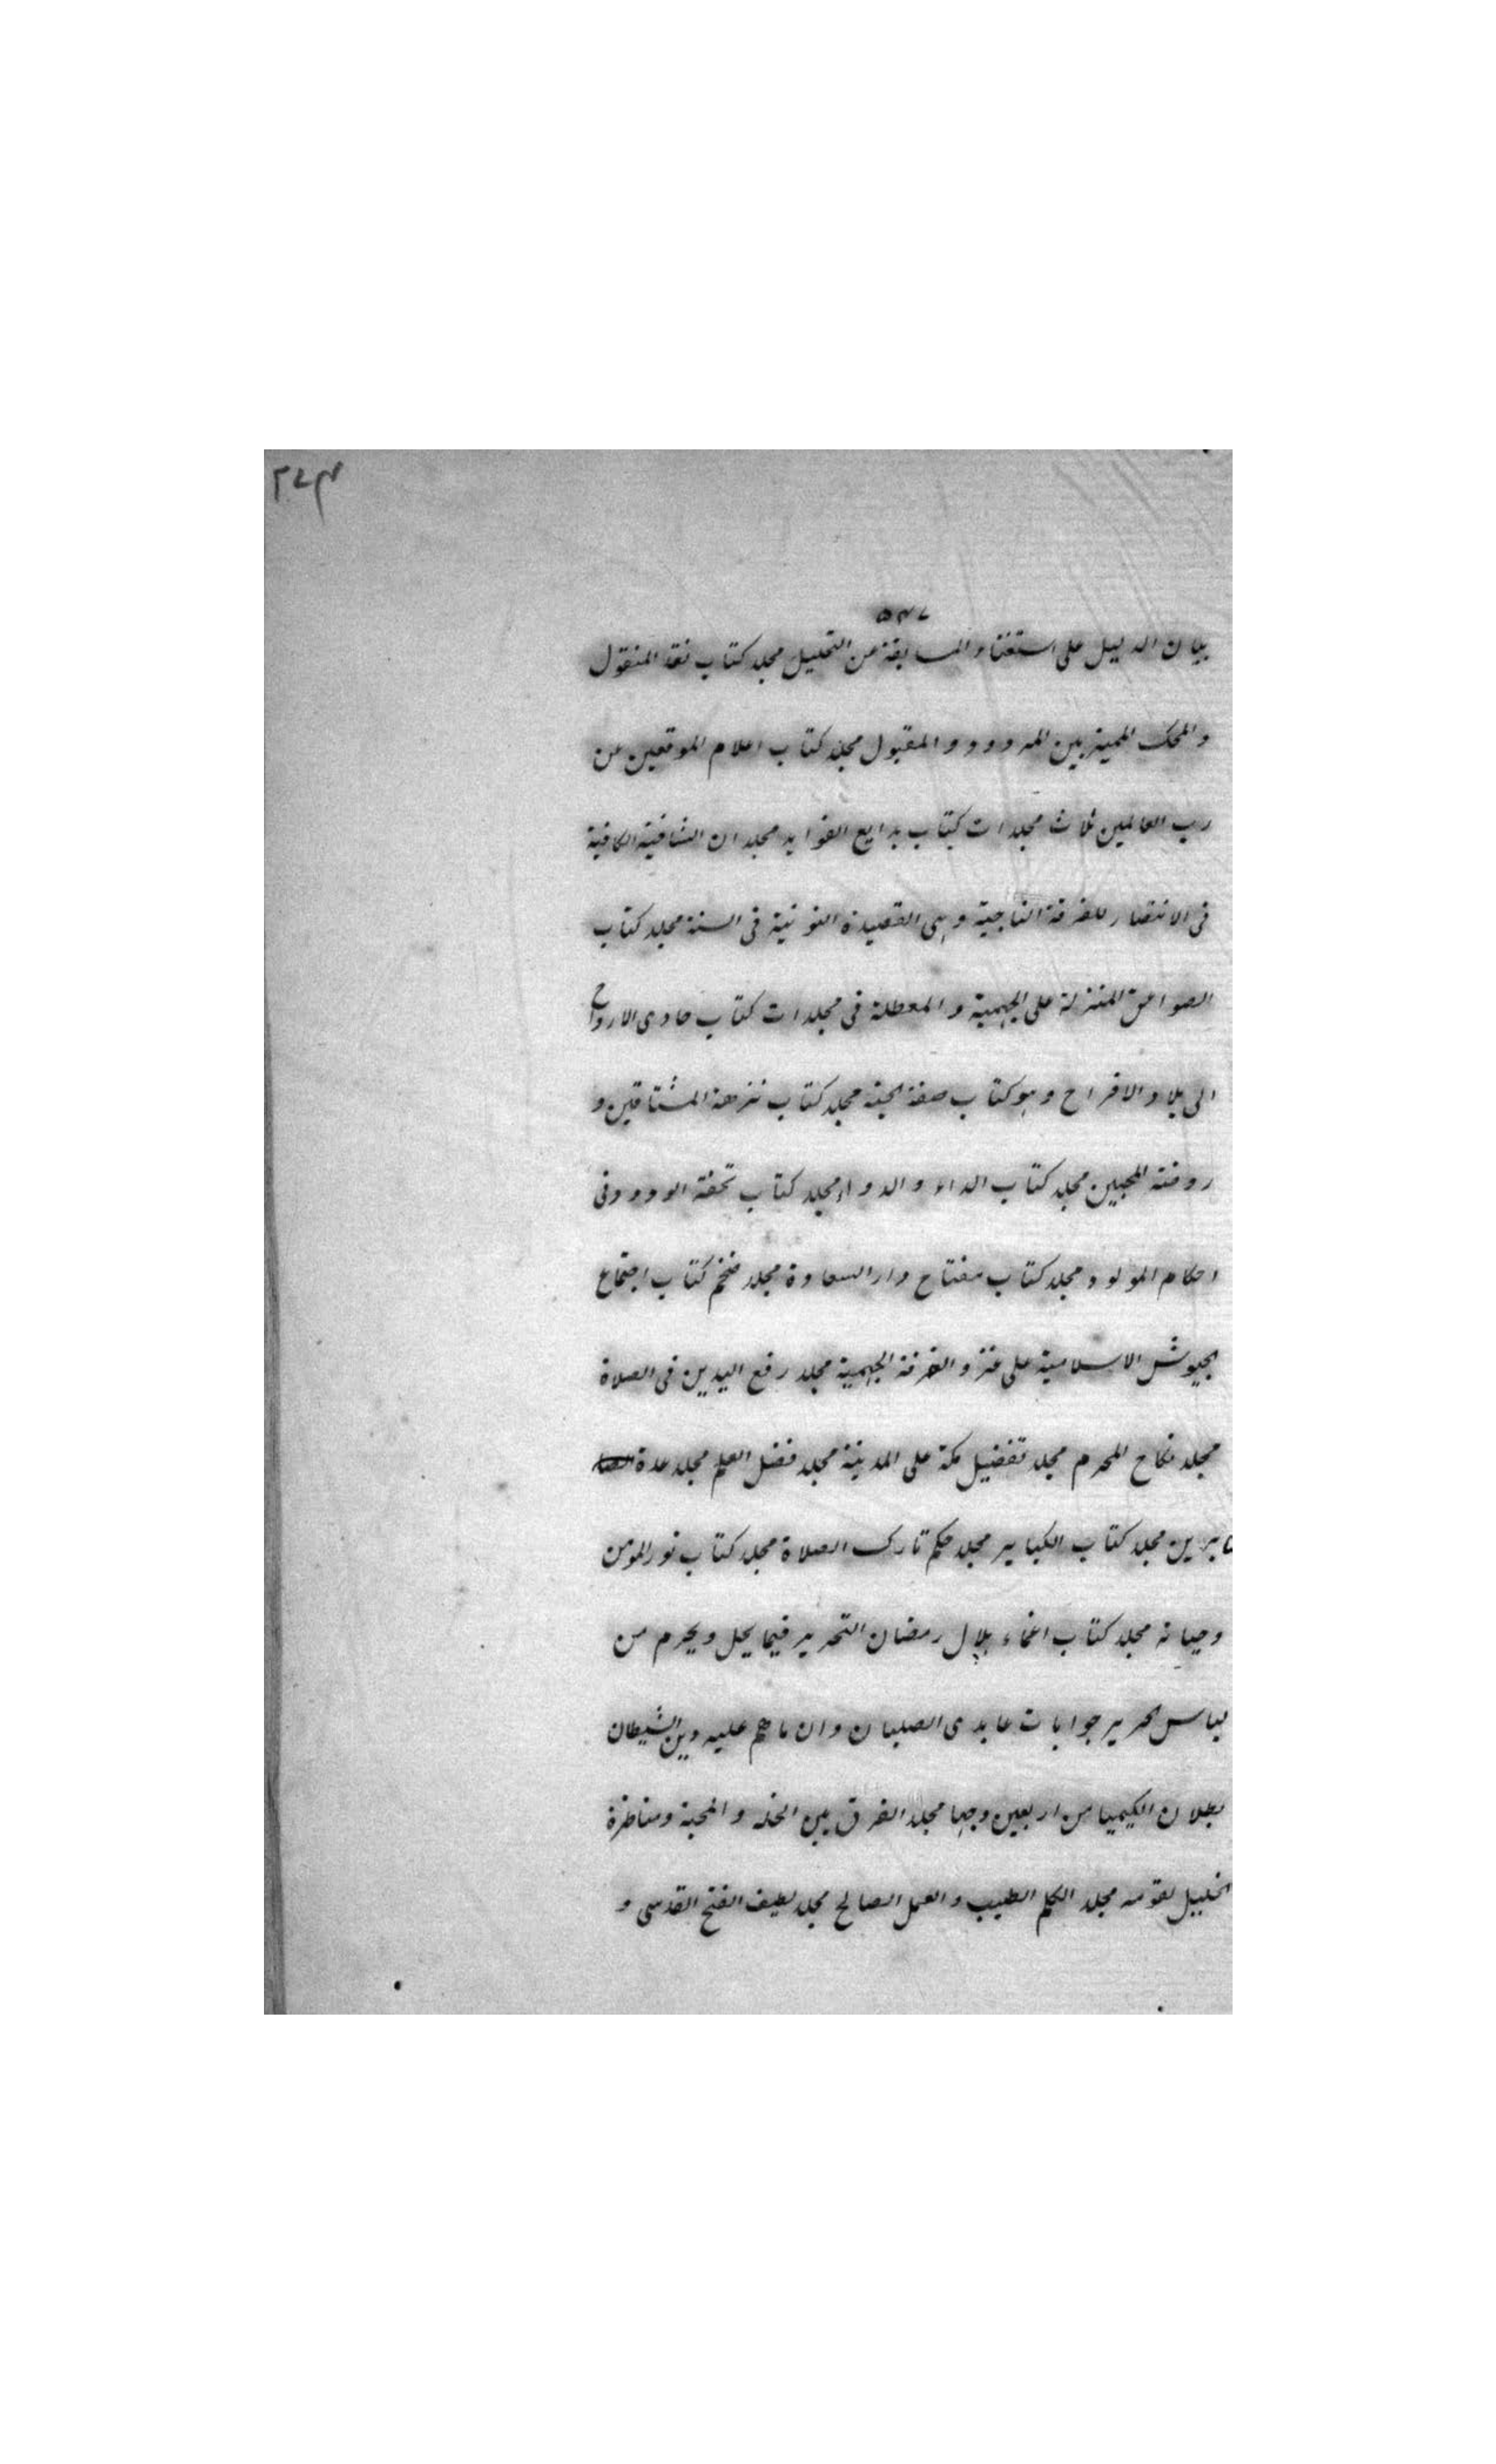 بيان الدليل على استغناء المسابقة عن التحليل مجلد كتاب نقد المنقول
والمحك المميز بين المردود والمقبول مجلد كتاب اعلام الموقعين عن
رب العالمين ثلاث مجلدات كتاب بدايع الفوايد مجلدان الشافية الكافية
فى الانتصار للفرقة الناجية وهى القصيدة النونية فى السنة مجلد كتاب
الصواعق المنزلة على الجهمية والمعطلة فى مجلدات كتاب حادى الارواح
الى بلاد الافراح وهو كتاب صفة الجنة مجلد كتاب نزهة المشتاقين و
روضة المحبين مجلد كتاب الداء والدواء مجلد كتاب تحفة الودود فى
احكام المولود مجلد كتاب مفتاح دار السعادة مجلد ضخم كتاب اجتماع
الجيوش الاسلامية على غزو الفرقة الجهمية مجلد رفع اليدين فى الصلاة
مجلد نكاح المحرم مجلد تفضيل مكة على المدينة مجلد فضل العلم مجلد عدة
ابرين مجلد كتاب الكباير مجلد حكم تارك الصلاة مجلد كتاب نور المؤمن
وحياته مجلد كتاب اغماء هلال رمضان التحرير فيما يحل ويحرم من
لباس الحرير جوابات عابدى الصلبان وان ما هم عليه دين الشيطان
بطلان الكيميا من اربعين وجها مجلد الفرق بين الخلة والمحبة ومناظرة
الخليل لقومه مجلد الكلم الطيب والعمل الصالح مجلد لطيف الفتح القدسى و